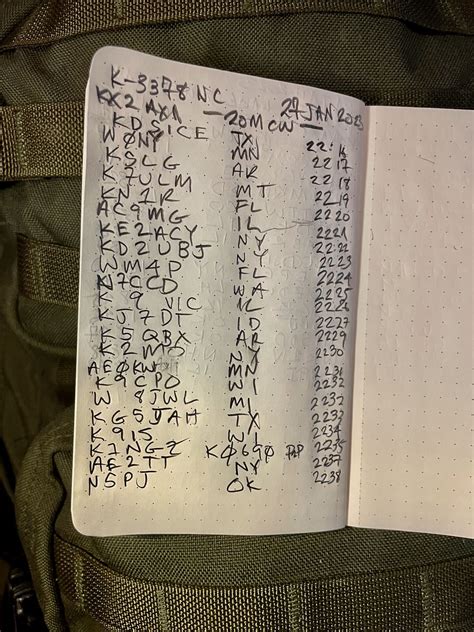 K-3378 NC JAN 2023
KX2 AX1 — 20M CW —
KD5ICE TX 22:16
WØNY MN 2217
K5LG AR 2218
K7ULM MT 2219
KN1R FL 2220
AC9MG IL 2221
KE2ACY NY 22:21
KD2UBJ NY 2223
WM4P FL 2224
N7CCD WA 2225
K9VIC IL 2226
KJ7DT ID 2227
K5QBX AR 2229
K2MO NY 2230
AEØKW MN 2231
K9CPO WI 2232
W8JWL MI 2232
KG5JAH TX 2233
K9IS WI 2234
K1NGZ KØ69Ø P2P 2235
AE2IT NY 2237
N5PJ OK 2238